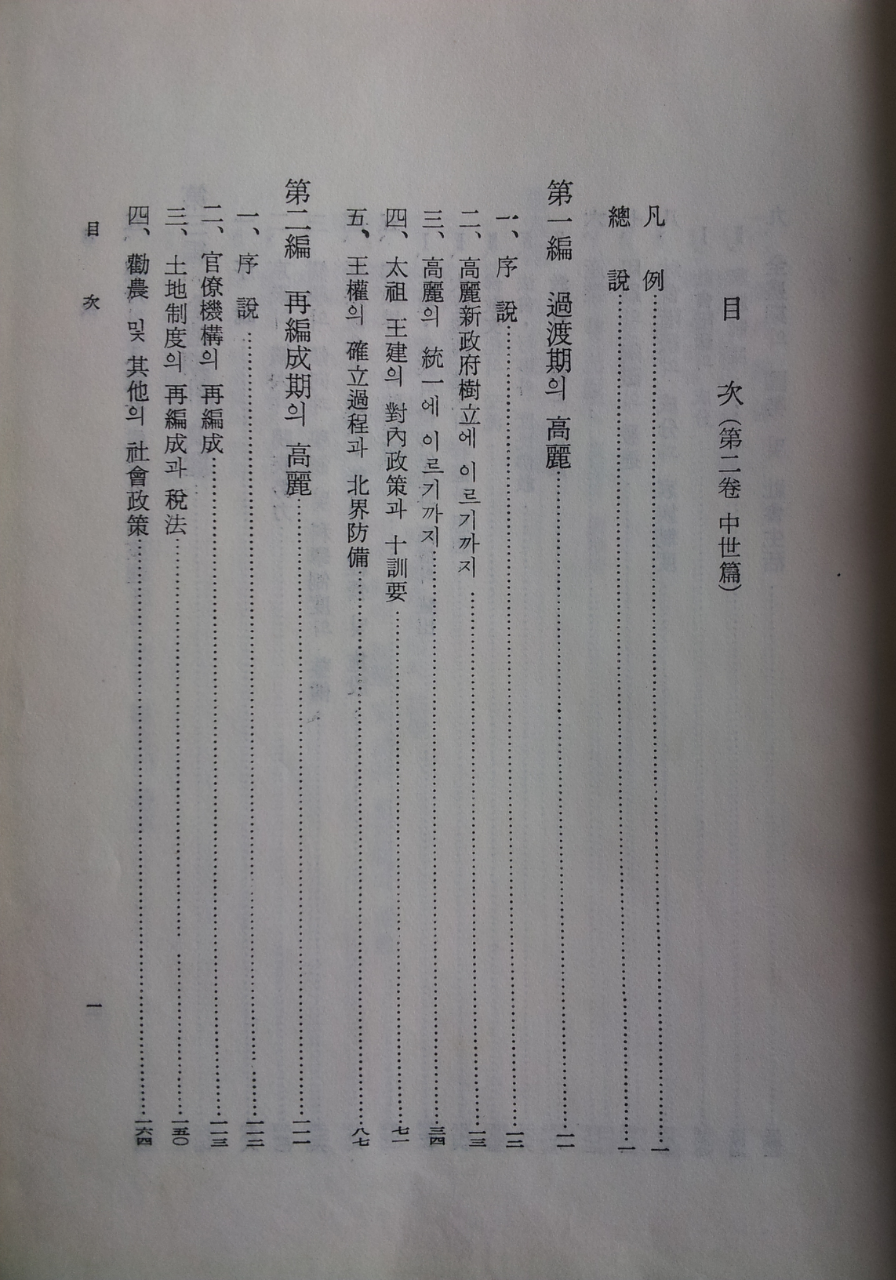 目 次 (第二卷 中世篇)
凡 例 一
總 說 一
第一編 過渡期의 高麗 一一
一、序 說 一二
二、高麗新政府樹立에 이르기까지 一三
三、高麗의 統一에 이르기까지 三四
四、太祖 王建의 對內政策과 十訓要 七一
五、王權의 確立過程과 北界防備 八七
第二編 再編成期의 高麗 一一一
一、序 說 一一二
二、官僚機構의 再編成 一一三
三、土地制度의 再編成과 稅法 一五〇
四、勸農 및 其他의 社會政策 一六四
目 次 一